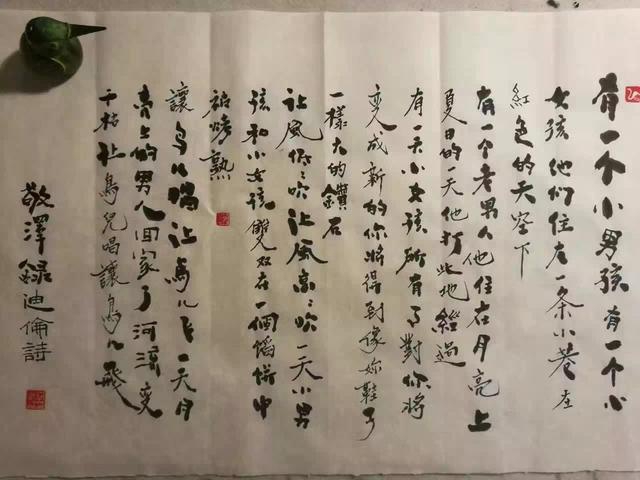 有一个小男孩有一个小
女孩他们住在一条小巷在
紅色的天空下
有一个老男人他住在月亮上
夏日的一天他打此地經過
有一天小女孩所有了對你将
变成新的你将得到像妳鞋子
一樣大的鑽石
让風低々吹让風高々吹一天小男
孩和小女孩雙双在一個馅餅中
被烤熟
讓鸟儿唱让鸟儿飞一天月
亮上的男人回家了河流变
干枯让鳥兒唱讓鸟儿飛
敬澤錄迪倫詩